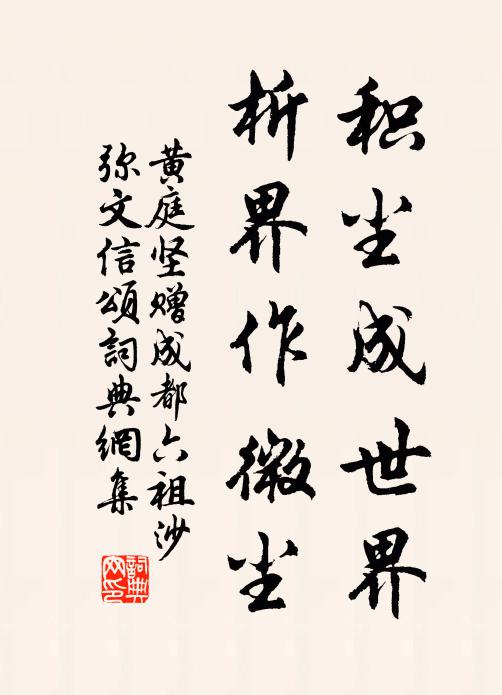 积尘成世界
析界作微尘
黄庭坚赠成都六祖沙
弥文信颂詞典網集
詞典网印